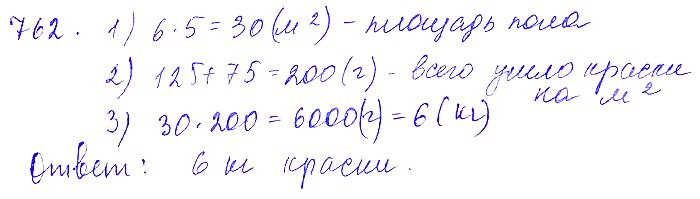 762. 1) 6·5=30(м²) - площадь пола
2) 125+75=200(г) - всего ушло краски
на м²
3) 30·200=6000(г)=6(кг)
Ответ: 6 кг краски.